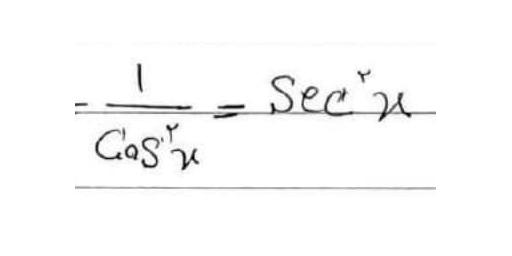 = 1 / Cos^۲ x = Sec^۲ x